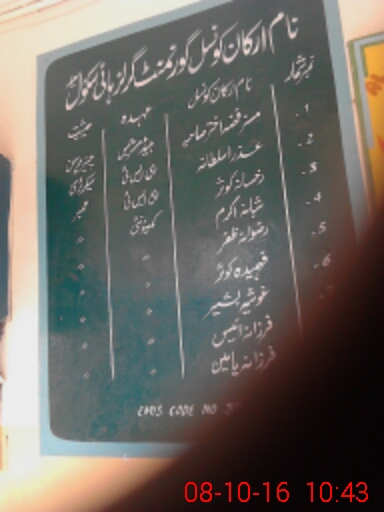 نام ارکان کونسل گورنمنٹ گرلز ہائی سکول
نمبر شمار نام ارکان کونسل عہدہ حیثیت
1 مسز فضا اختر صاحبہ ہیڈمسٹریس چیئرپرسن
2 عذرا سلطانہ ای ایس ٹی سیکرٹری
3 رخسانہ کوثر ای ایس ٹی ممبر
4 شبانہ اکرم کمیونٹی "
5 رضوانہ ظفر " "
6 فہمیدہ کوثر " "
خوشیہ بشیر " "
فرزانہ انیس " "
فرزانہ یاسین " "
EMIS CODE NO 3
08-10-16 10:43